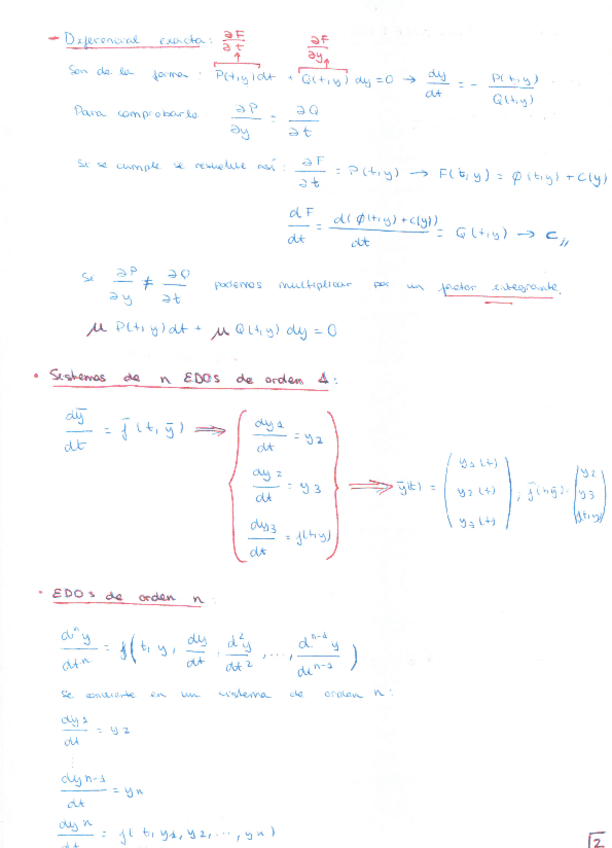 - Diferencial exacta: ∂F/∂t ∂F/∂y
Son de la forma: P(t,y)dt + Q(t,y) dy = 0 → dy/dt = - P(t,y)/Q(t,y)
Para comprobarlo ∂P/∂y = ∂Q/∂t
Si se cumple se resuelve así: ∂F/∂t = P(t,y) → F(t,y) = φ(t,y) + C(y)
dF/dt = d(φ(t,y)+C(y))/dt = Q(t,y) → C,,
Si ∂P/∂y ≠ ∂Q/∂t podemos multiplicar por un factor integrante.
μ P(t,y)dt + μ Q(t,y) dy = 0
• Sistemas de n EDOs de orden 1:
dȳ/dt = f̄(t, ȳ) ⟹ { dy1/dt = y2
dy2/dt = y3
dy3/dt = f(t,y) } ⟹ ȳ(t) = ( y1(t) y2(t) y3(t) ) ; f̄(t,ȳ) = ( y2 y3 f(t,y) )
• EDOs de orden n:
dⁿy/dtⁿ = f( t, y, dy/dt, d²y/dt², ..., dⁿ⁻¹y/dtⁿ⁻¹ )
Se convierte en un sistema de orden n:
dy1/dt = y2
⋮
dyn-1/dt = yn
dyn/dt = f( t, y1, y2, ..., yn )
2